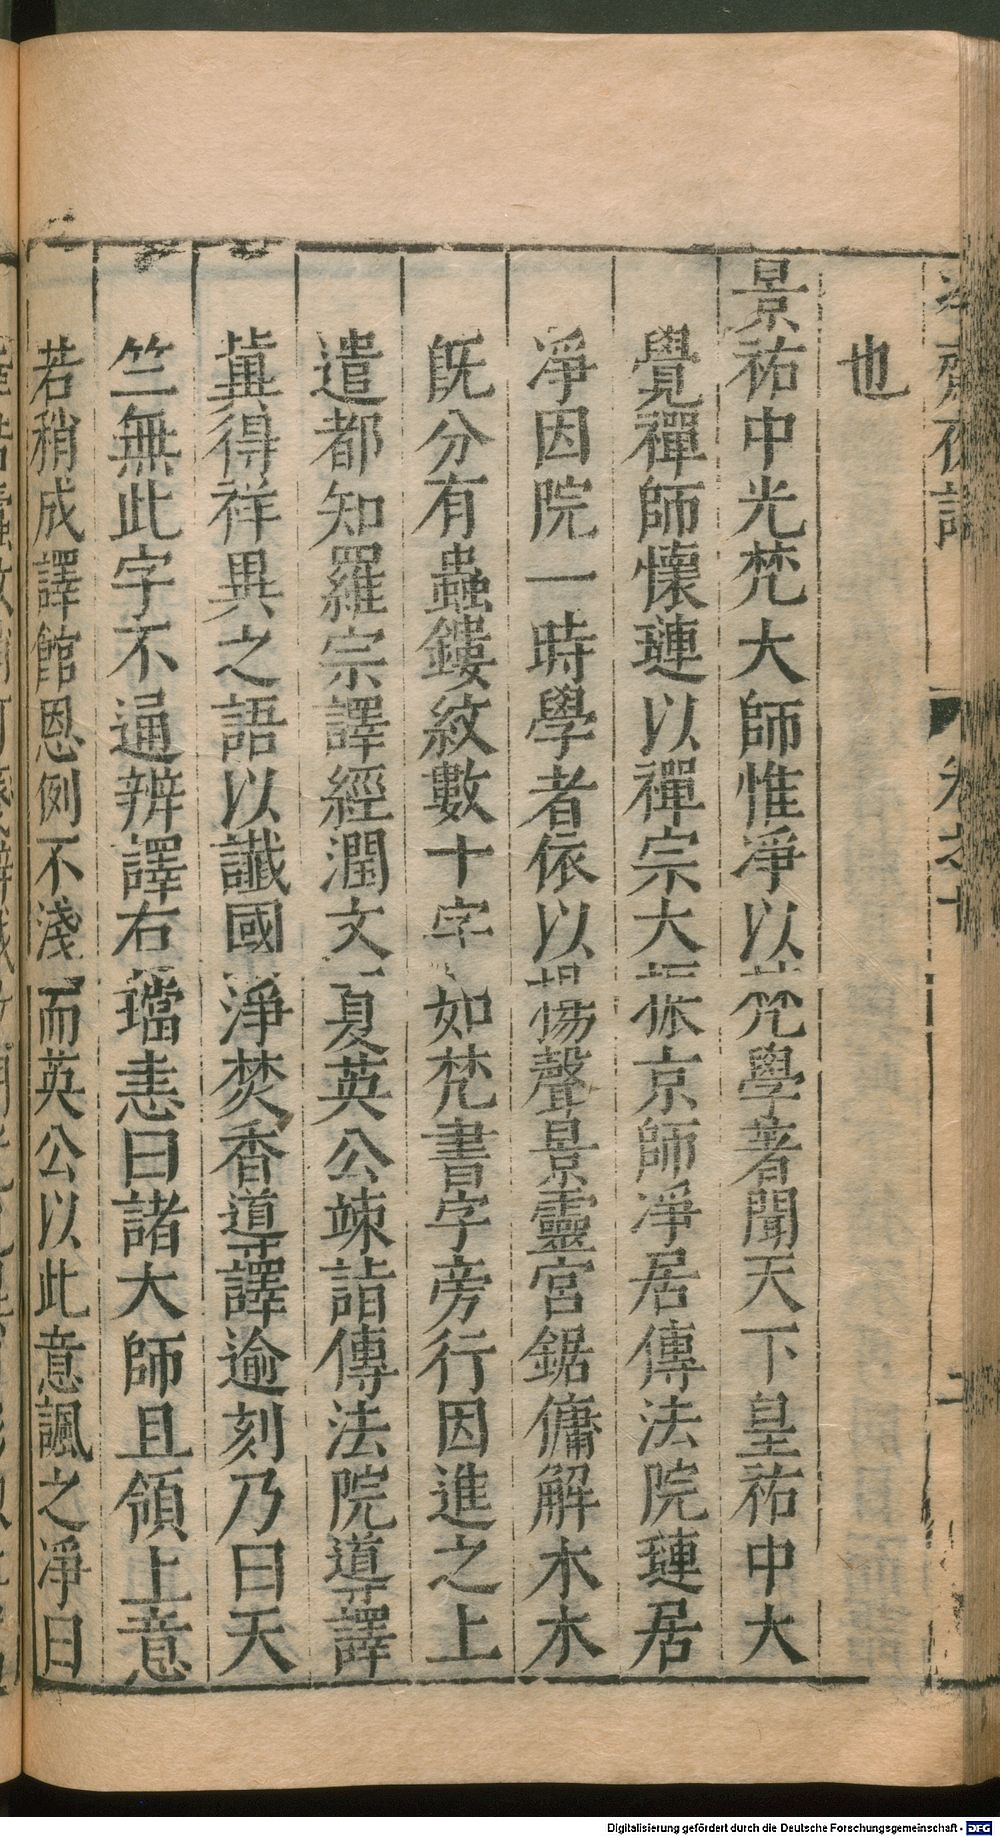 冷齋夜話 卷之十 二
也
景祐中光梵大師惟淨以梵學著聞天下皇祐中大
覺禪師懷璉以禪宗大振京師淨居傳法院璉居
淨因院一時學者依以揚聲景靈宮鋸傭解木木
旣分有蟲鏤紋數十字如梵書字旁行因進之上
遣都知羅宗譯經潤文夏英公竦詣傳法院導譯
冀得祥異之語以讖國淨焚香導譯逾刻乃曰天
竺無此字不通辨譯右璫恚曰諸大師且領上意
若稍成譯館恩例不淺而英公以此意諷之淨曰
Digitalisierung gefördert durch die Deutsche Forschungsgemeinschaft - DFG